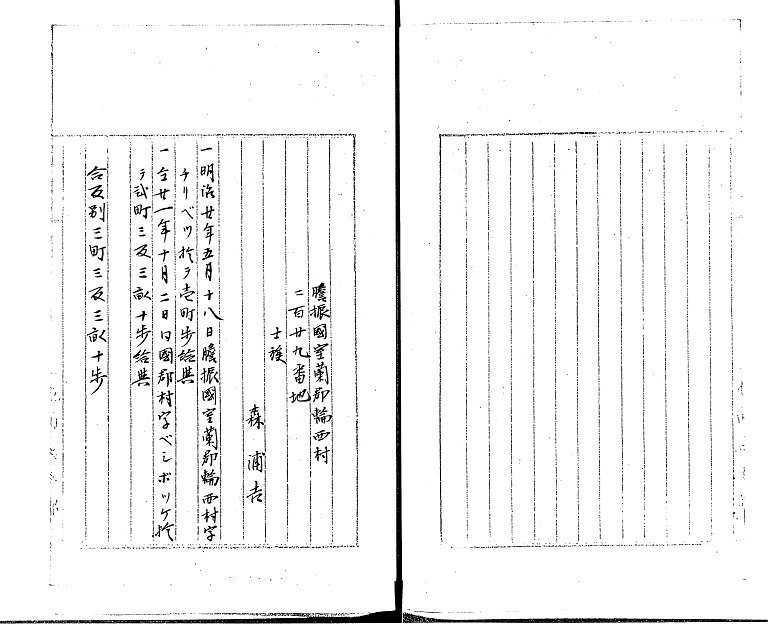 膽振國室蘭郡輪西村
二百廿九番地
士族
森浦吉
一明治廿年五月十八日膽振國室蘭郡輪西村字
チリベツ於テ壱町歩給與
一仝廿一年十月二日同國郡村字ペシボッケ於
テ弐町三反三畝十歩給與
合反別三町三反三畝十歩